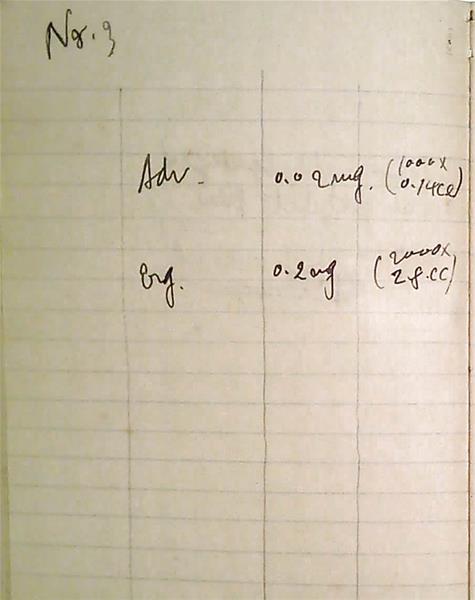 Nr. 3
Adr. 0.02mg. (1000x 0.14cc)
Erg. 0.2mg (2000x 2.8.cc)